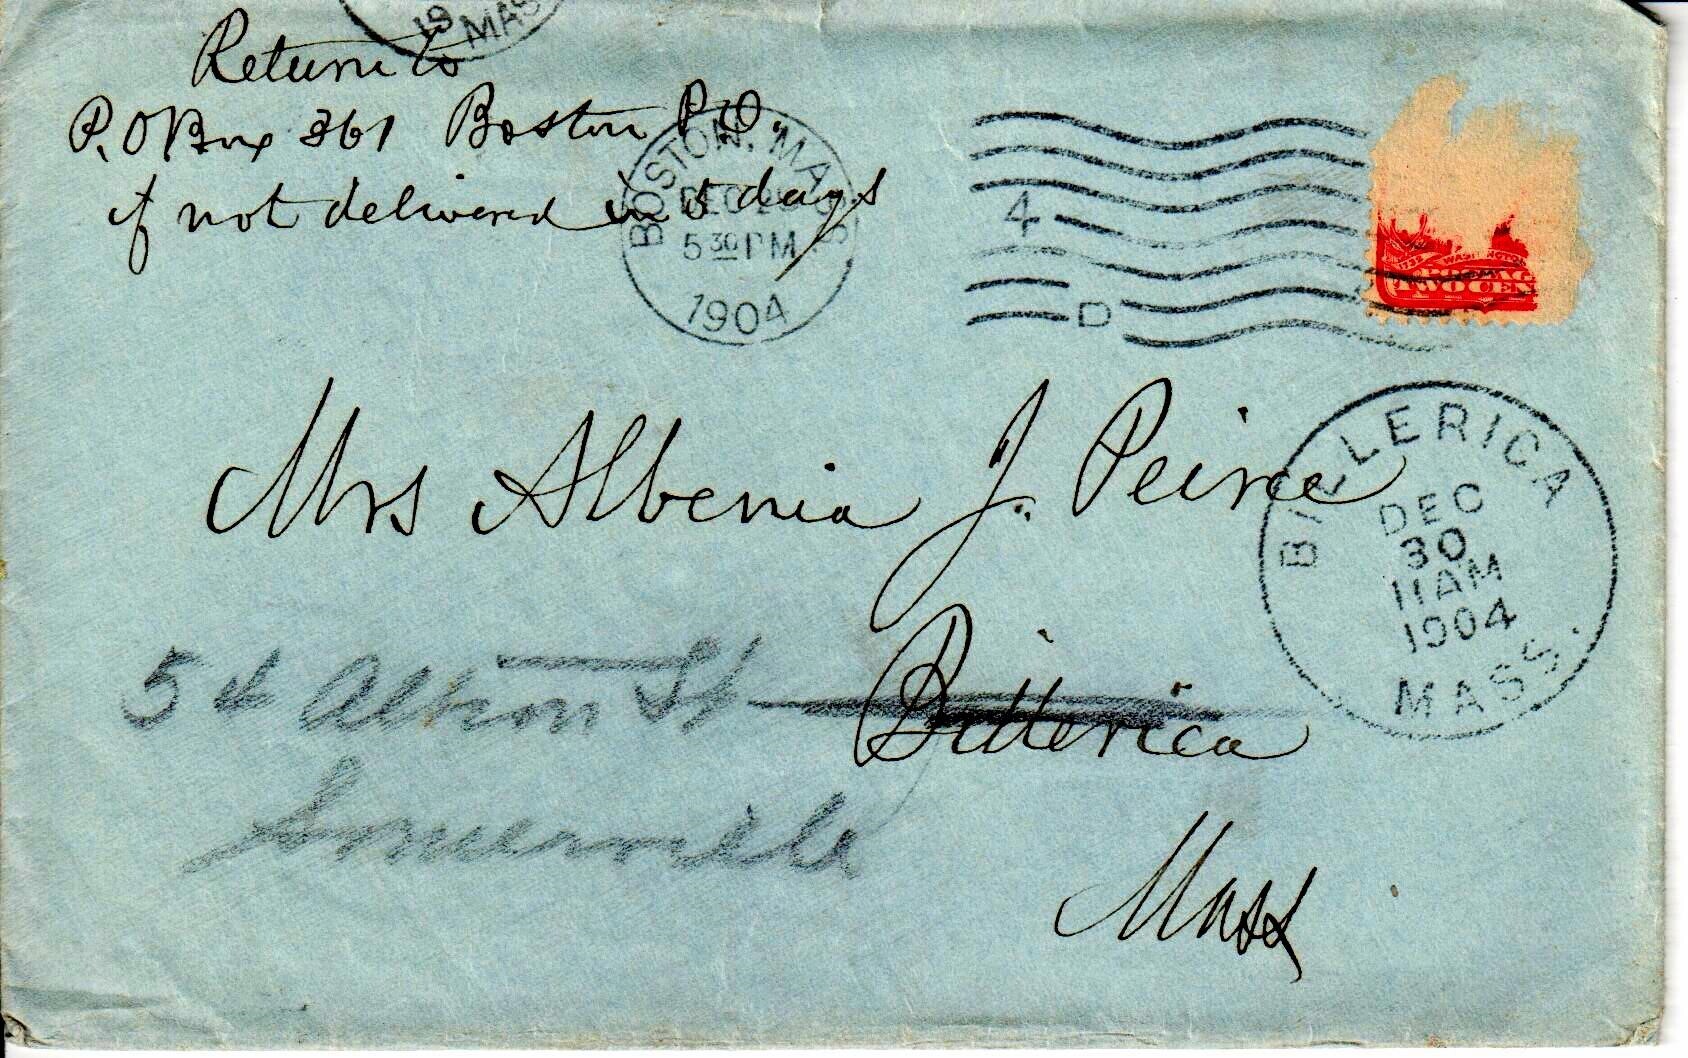 19 MASS
Return to
P.O Box 361 Boston P.O.
if not delivered in 5 days
BOSTON, MASS.
DEC
5 30 PM
1904
4
D
1732 WASHINGTON
TWO CEN
Mrs Albenia J. Peirce
BILLERICA
DEC
30
11 AM
1904
MASS.
54 Albion St
Billerica
Somerville
Mass